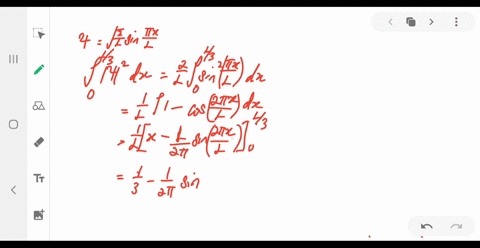 Ψ = √(2/L) sin πx/L
∫₀^{L/3} |Ψ|² dx = 2/L ∫₀^{L/3} sin²(πx/L) dx
= 1/L ∫ 1 - cos(2πx/L) dx
= 1/L [x - L/2π sin(2πx/L)]₀^{L/3}
= 1/3 - 1/2π sin
Tт